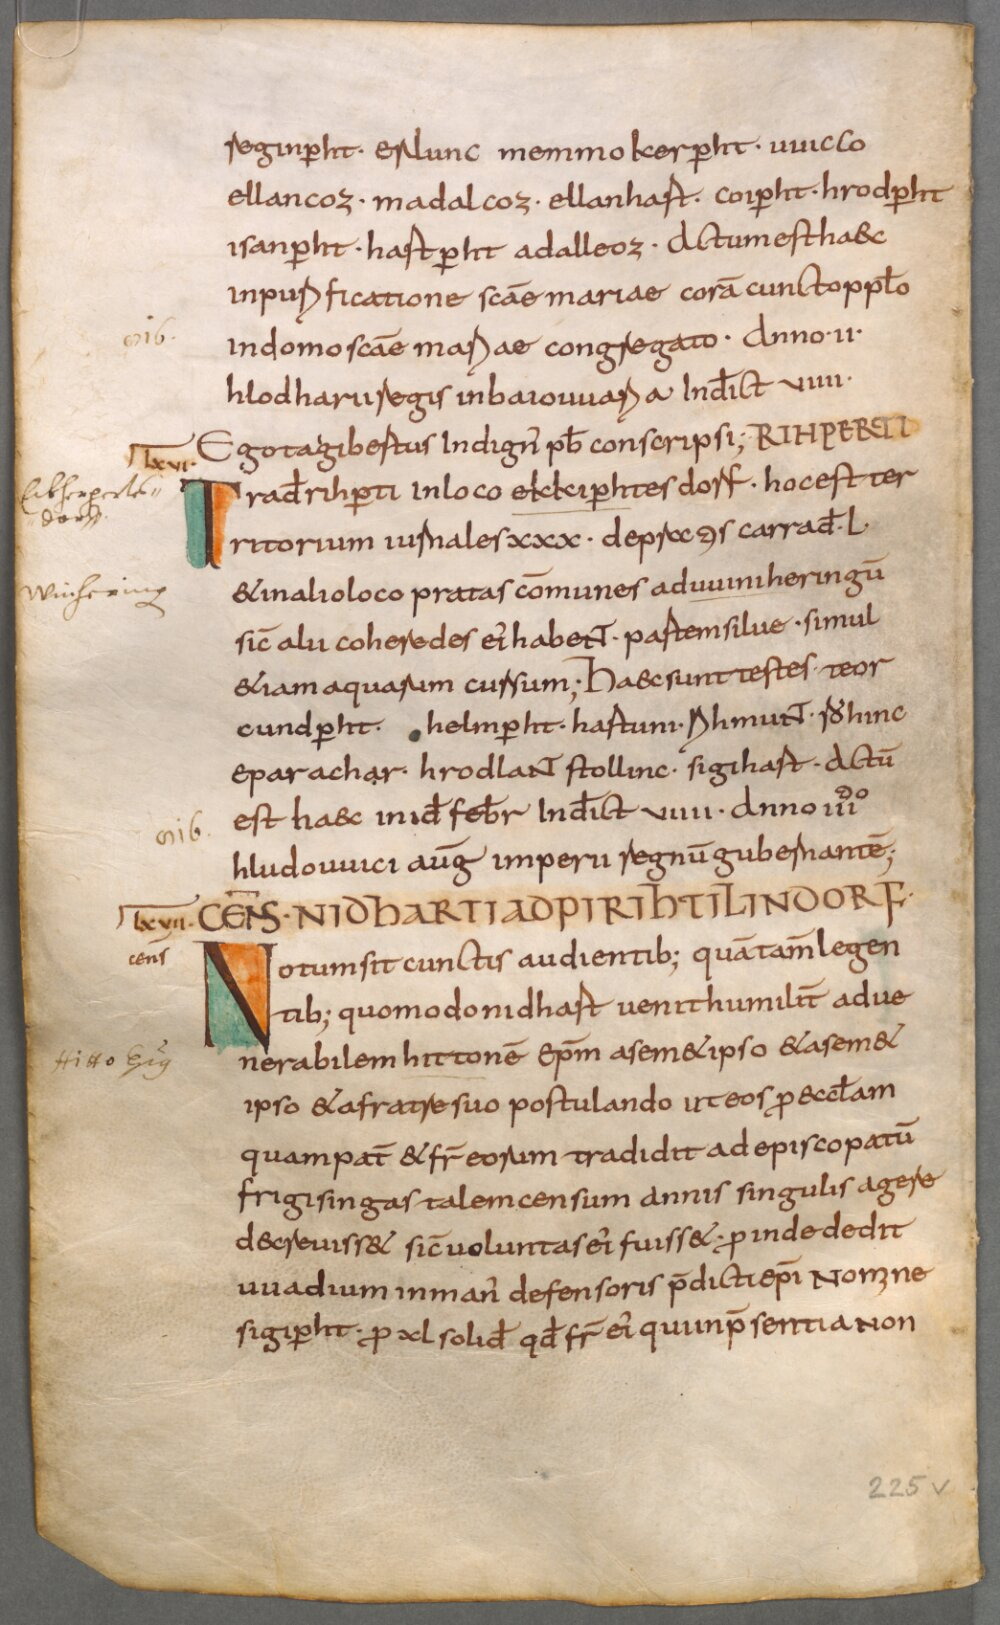 reginꝑht· erlunc memmo kerꝑht· uuicco
ellancoz· madalcoz· ellanhart· coiꝑht· hrodꝑht
isanꝑht· hartꝑht adalleoz· Actum est haec
in purificatione scāe mariae corā cuncto ppło
nib·
in domo scāe mariae congregato· Anno·ii·
hlodharii regis in baiouuaria Indict̄ viiii·
Ego tagibertus Indign̄ pb̄ conscripsi; RIHPERTI
lxvi·
Trad̄ rihꝑti in loco ekkiꝑhtes dorf· hoc est ter
ritorium iurnales xxx· de pratis carrad̄·L·
Winhering
& in alio loco pratas cōmunes ad uuiniheringū
sic̄ alii coheredes ei habent· partem silue· simul
&iam aquarum cursum; Haec sunt testes· teor
cundꝑht· helmꝑht· hartuni· rihmunt· rohinc
eparachar· hrodlant stollinc· sigihart· Actū
est haec in id̄ feb̄r Ind̄ict viiii· Anno iii do
nib·
hludouuici aūg imperii regnū gubernantē;
lxvii· CĒNS· NIDHARTI AD PIRIHTILINDORF·
cens̄
Notum sit cunctis audientib; quā tam̄ legen
tib; quomodo nidhart uenit humilit̄ ad ue
Hitto
nerabilem hittonē ep̄m a sem& ipso & a sem&
ipso & a fratre suo postulando ut eos ꝓ eccl̄am
quam pat̄ & fr̄ eorum tradidit ad episcopatū
frigisingas talem censum annis singulis agere
decreuiss& sic̄ uoluntas ei fuiss&; ꝓinde dedit
uuadium in man̄ defensoris p̄dicti ep̄i nomine
sigiꝑht· ꝓ xl solid̄ qd̄ fr̄ ei qui in p̄sentia non
225 v